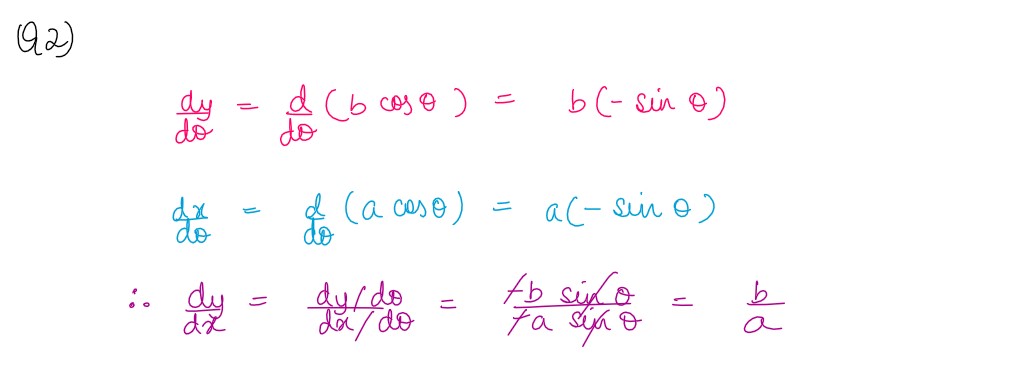 Q2)
dy/dθ = d/dθ (b cos θ) = b(- sin θ)
dx/dθ = d/dθ (a cos θ) = a(- sin θ)
∴ dy/dx = (dy/dθ)/(dx/dθ) = (-b sin θ)/(-a sin θ) = b/a